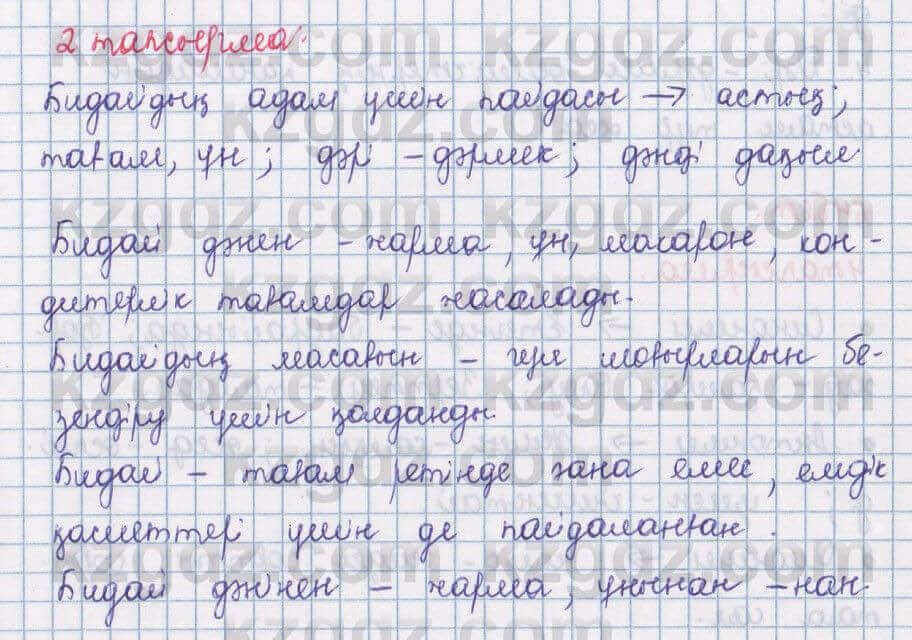 2 тапсырма.
Бидайдың адам үшін пайдасы → астық,
тағам, ұн; дәрі - дәрмек; дәнді дақыл
Бидай дәнен - жарма, ұн, макарон, кон-
дитерлік тағамдар жасалады.
Бидайдың масағын - гүл шоғырларын бе-
зендіру үшін қолданды.
Бидай - тағам ретінде ғана емес, емдік
қасиеттері үшін де пайдаланған.
Бидай дәннен - жарма, ұнынан - нан.
kzgdz.com